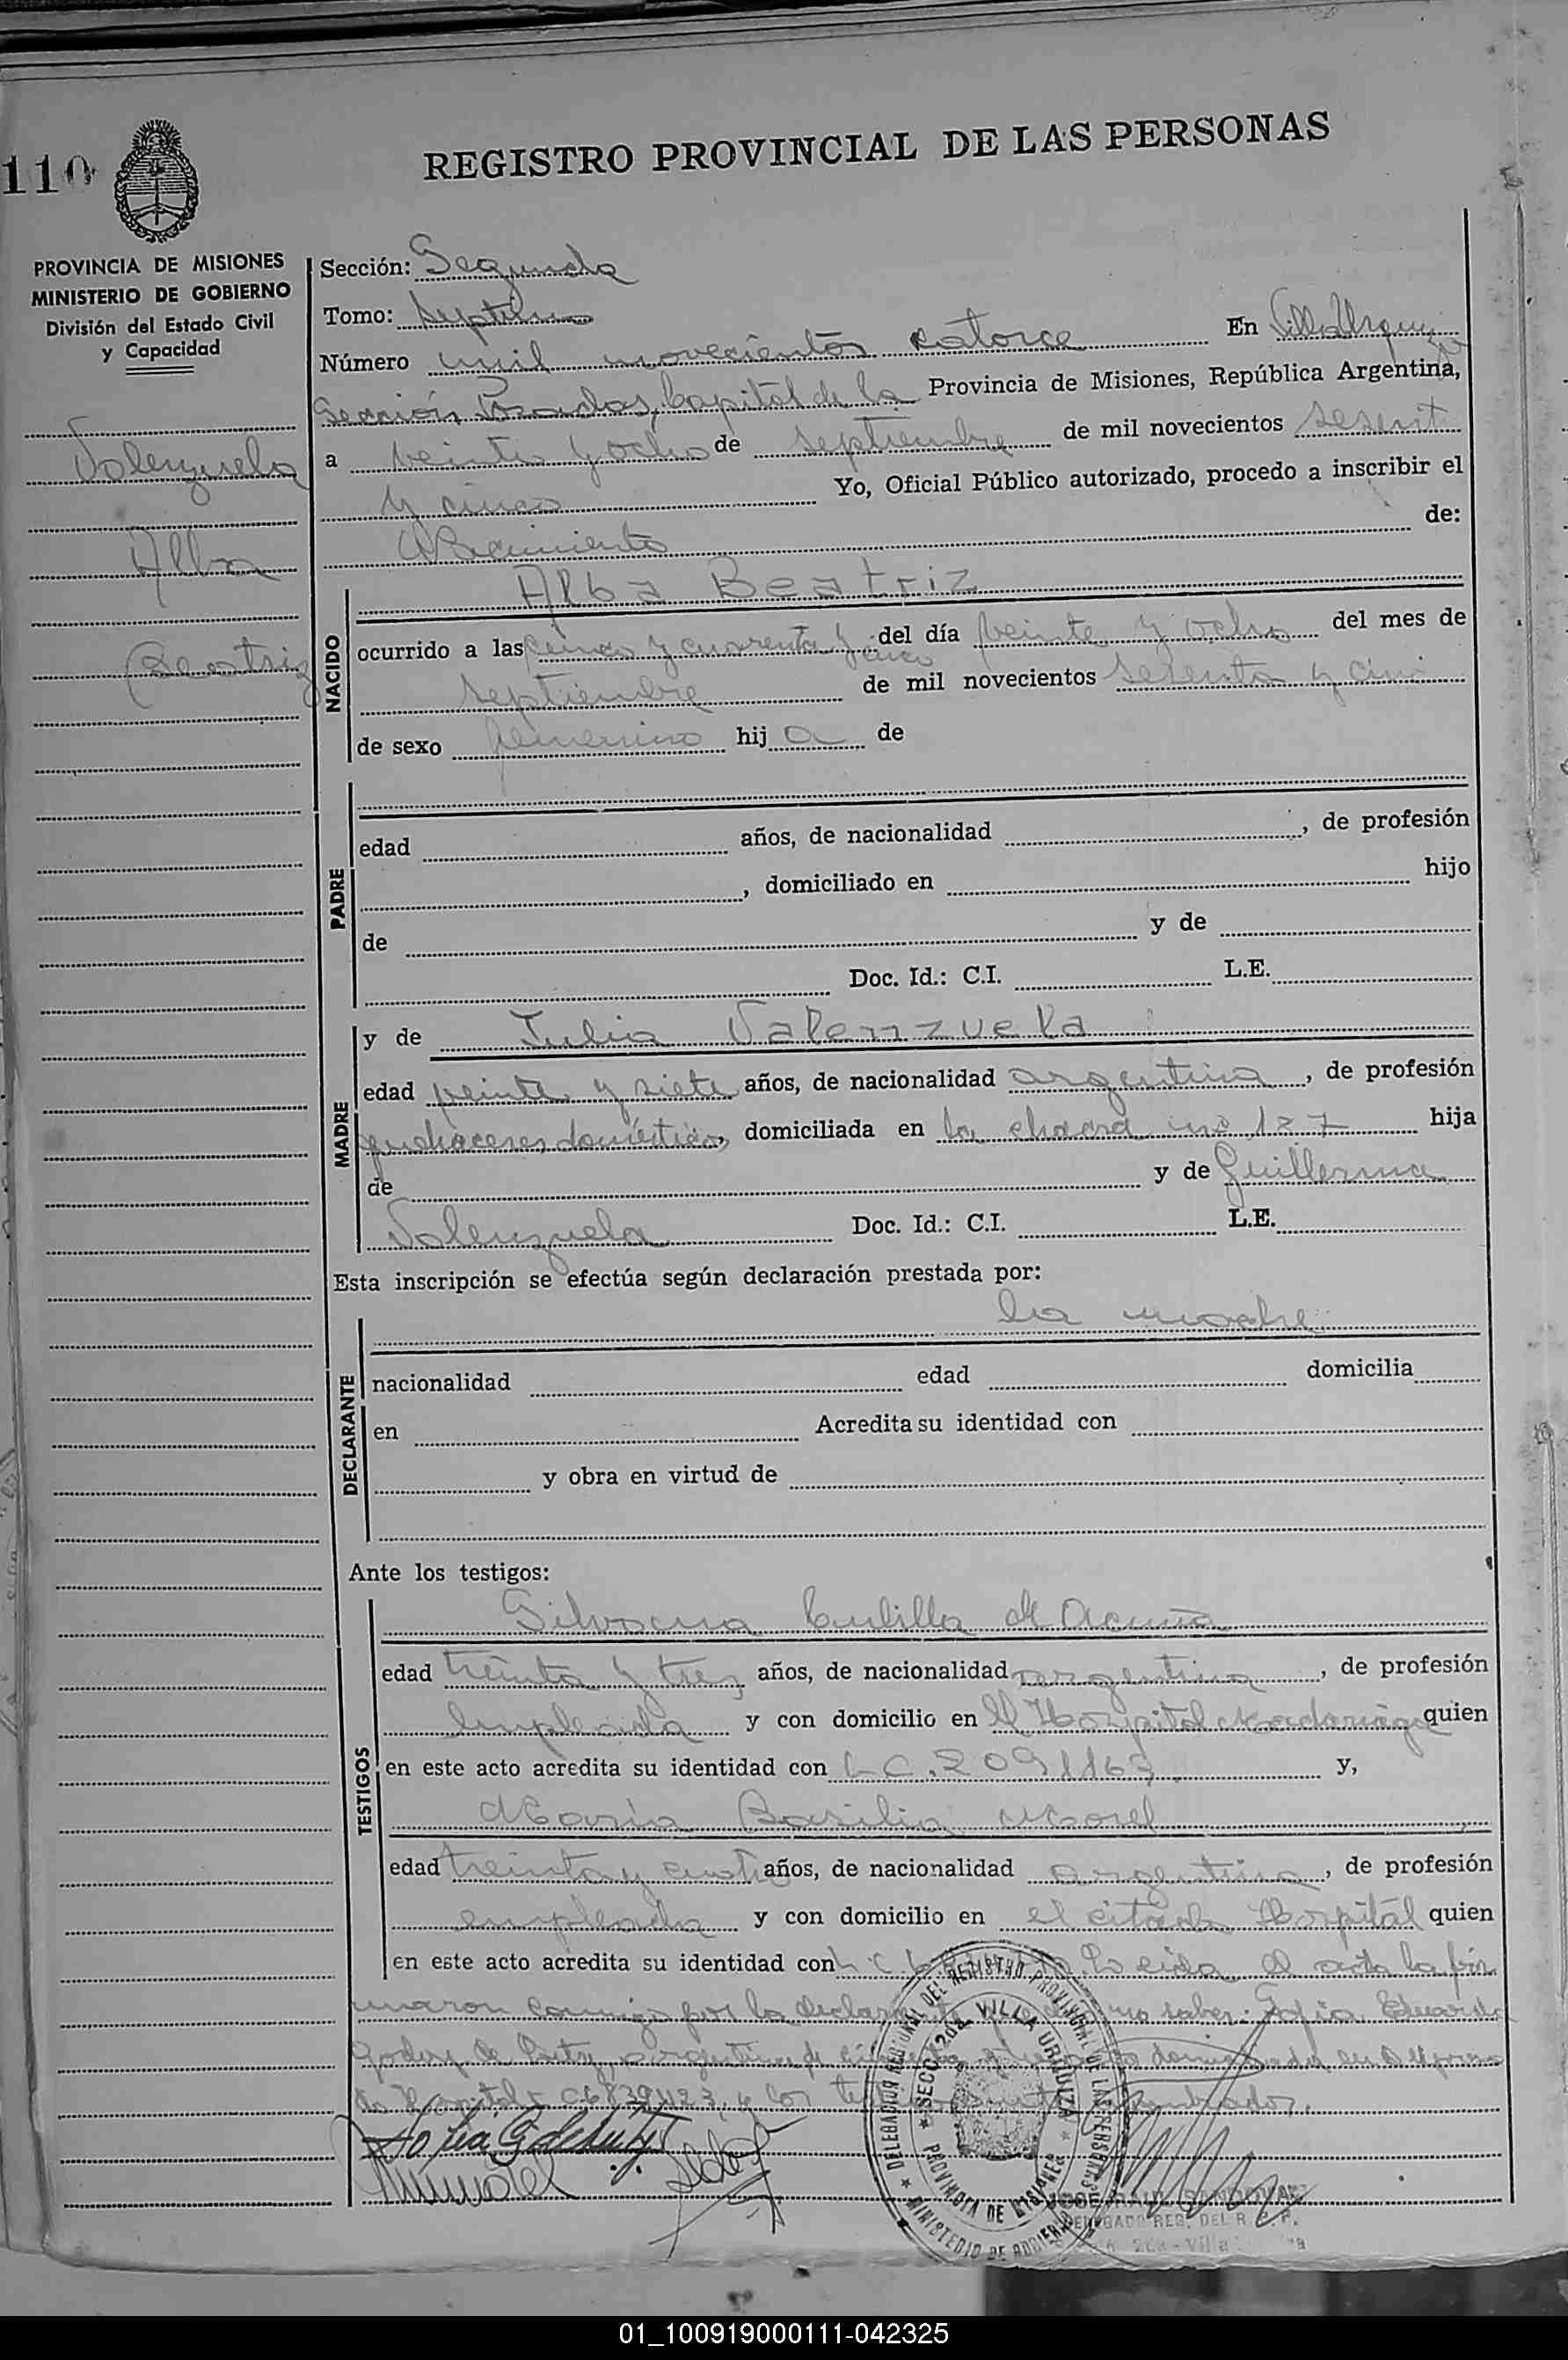 110
REGISTRO PROVINCIAL DE LAS PERSONAS
PROVINCIA DE MISIONES
MINISTERIO DE GOBIERNO
División del Estado Civil
y Capacidad
Valenzuela
Alba
Beatriz
Sección: Segunda
Tomo: septimo
Número mil novecientos catorce En Villa Urquiza
Sección, Posadas, Capital de la Provincia de Misiones, República Argentina,
a veinte y ocho de septiembre de mil novecientos sesenta
y cinco Yo, Oficial Público autorizado, procedo a inscribir el
Nacimiento de:
NACIDO
Alba Beatriz
ocurrido a las cinco y cuarenta y cinco del día veinte y ocho del mes de
septiembre de mil novecientos sesenta y cinco
de sexo femenino hija de
PADRE
edad años, de nacionalidad , de profesión
, domiciliado en hijo
de y de
Doc. Id.: C.I. L.E.
MADRE
y de Julia Valenzuela
edad veinte y siete años, de nacionalidad argentina, de profesión
quehaceres domésticos, domiciliada en la chacra nº 127 hija
de y de Guillerma
Valenzuela Doc. Id.: C.I. L.E.
Esta inscripción se efectúa según declaración prestada por:
DECLARANTE
la madre
nacionalidad edad domicilia
en Acredita su identidad con
y obra en virtud de
Ante los testigos:
TESTIGOS
Silvana de Acuña
edad treinta y tres años, de nacionalidad argentina, de profesión
Empleada y con domicilio en el Hospital Madariaga quien
en este acto acredita su identidad con L C. 2091163 y,
María Basilia Morel
edad treinta y cuatro años, de nacionalidad argentina, de profesión
empleada y con domicilio en el citado Hospital quien
en este acto acredita su identidad con L.C. Leida el acta la fir
maron conmigo por la no saber: Sofía
Godoy de argentina, de domiciliada en
y los
DELEGACION REGIONAL DEL REGISTRO PROVINCIAL DE LAS PERSONAS
SECC. 2da. VILLA URQUIZA
PROVINCIA DE MISIONES
MINISTERIO DE GOBIERNO
JOSE RAUL SANDOVAL
DELEGADO REG. DEL R. P. P.
2da - Villa
01_100919000111-042325